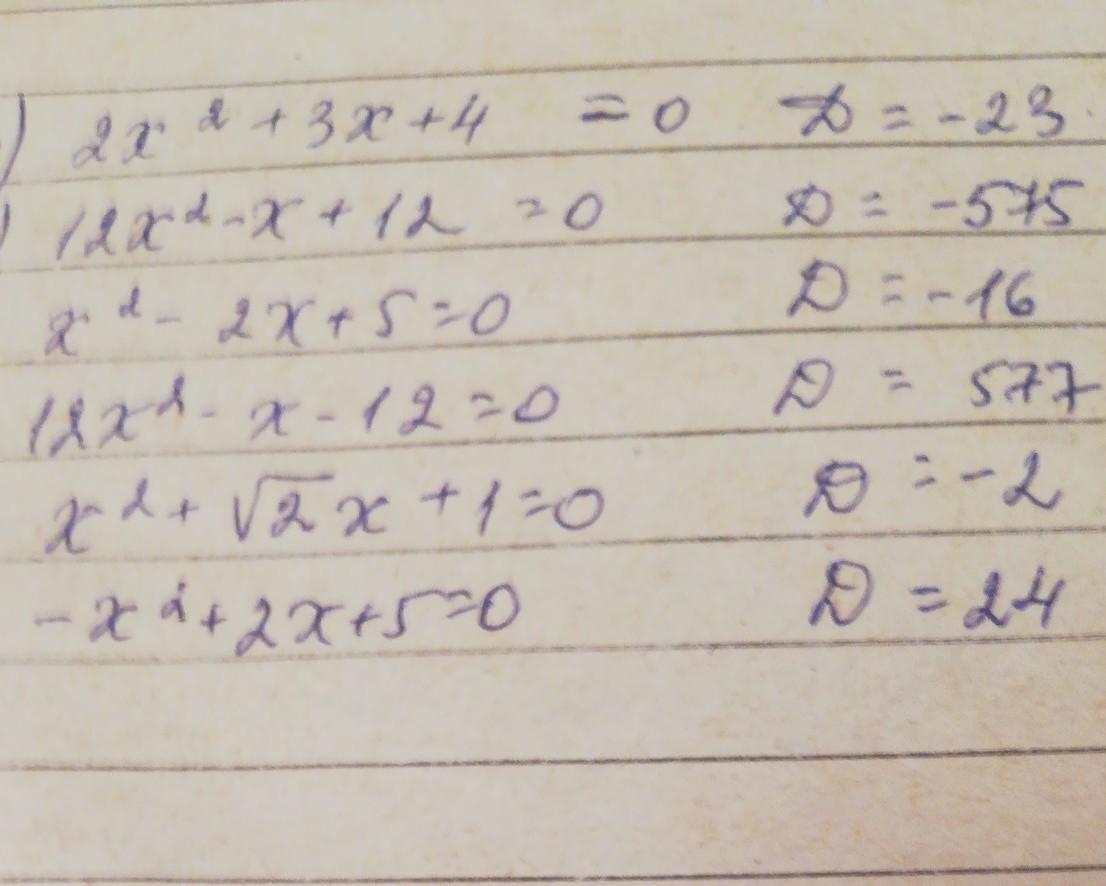 ) 2x² + 3x + 4 = 0 D = -23
) 12x² - x + 12 = 0 D = -575
x² - 2x + 5 = 0 D = -16
12x² - x - 12 = 0 D = 577
x² + √2x + 1 = 0 D = -2
-x² + 2x + 5 = 0 D = 24